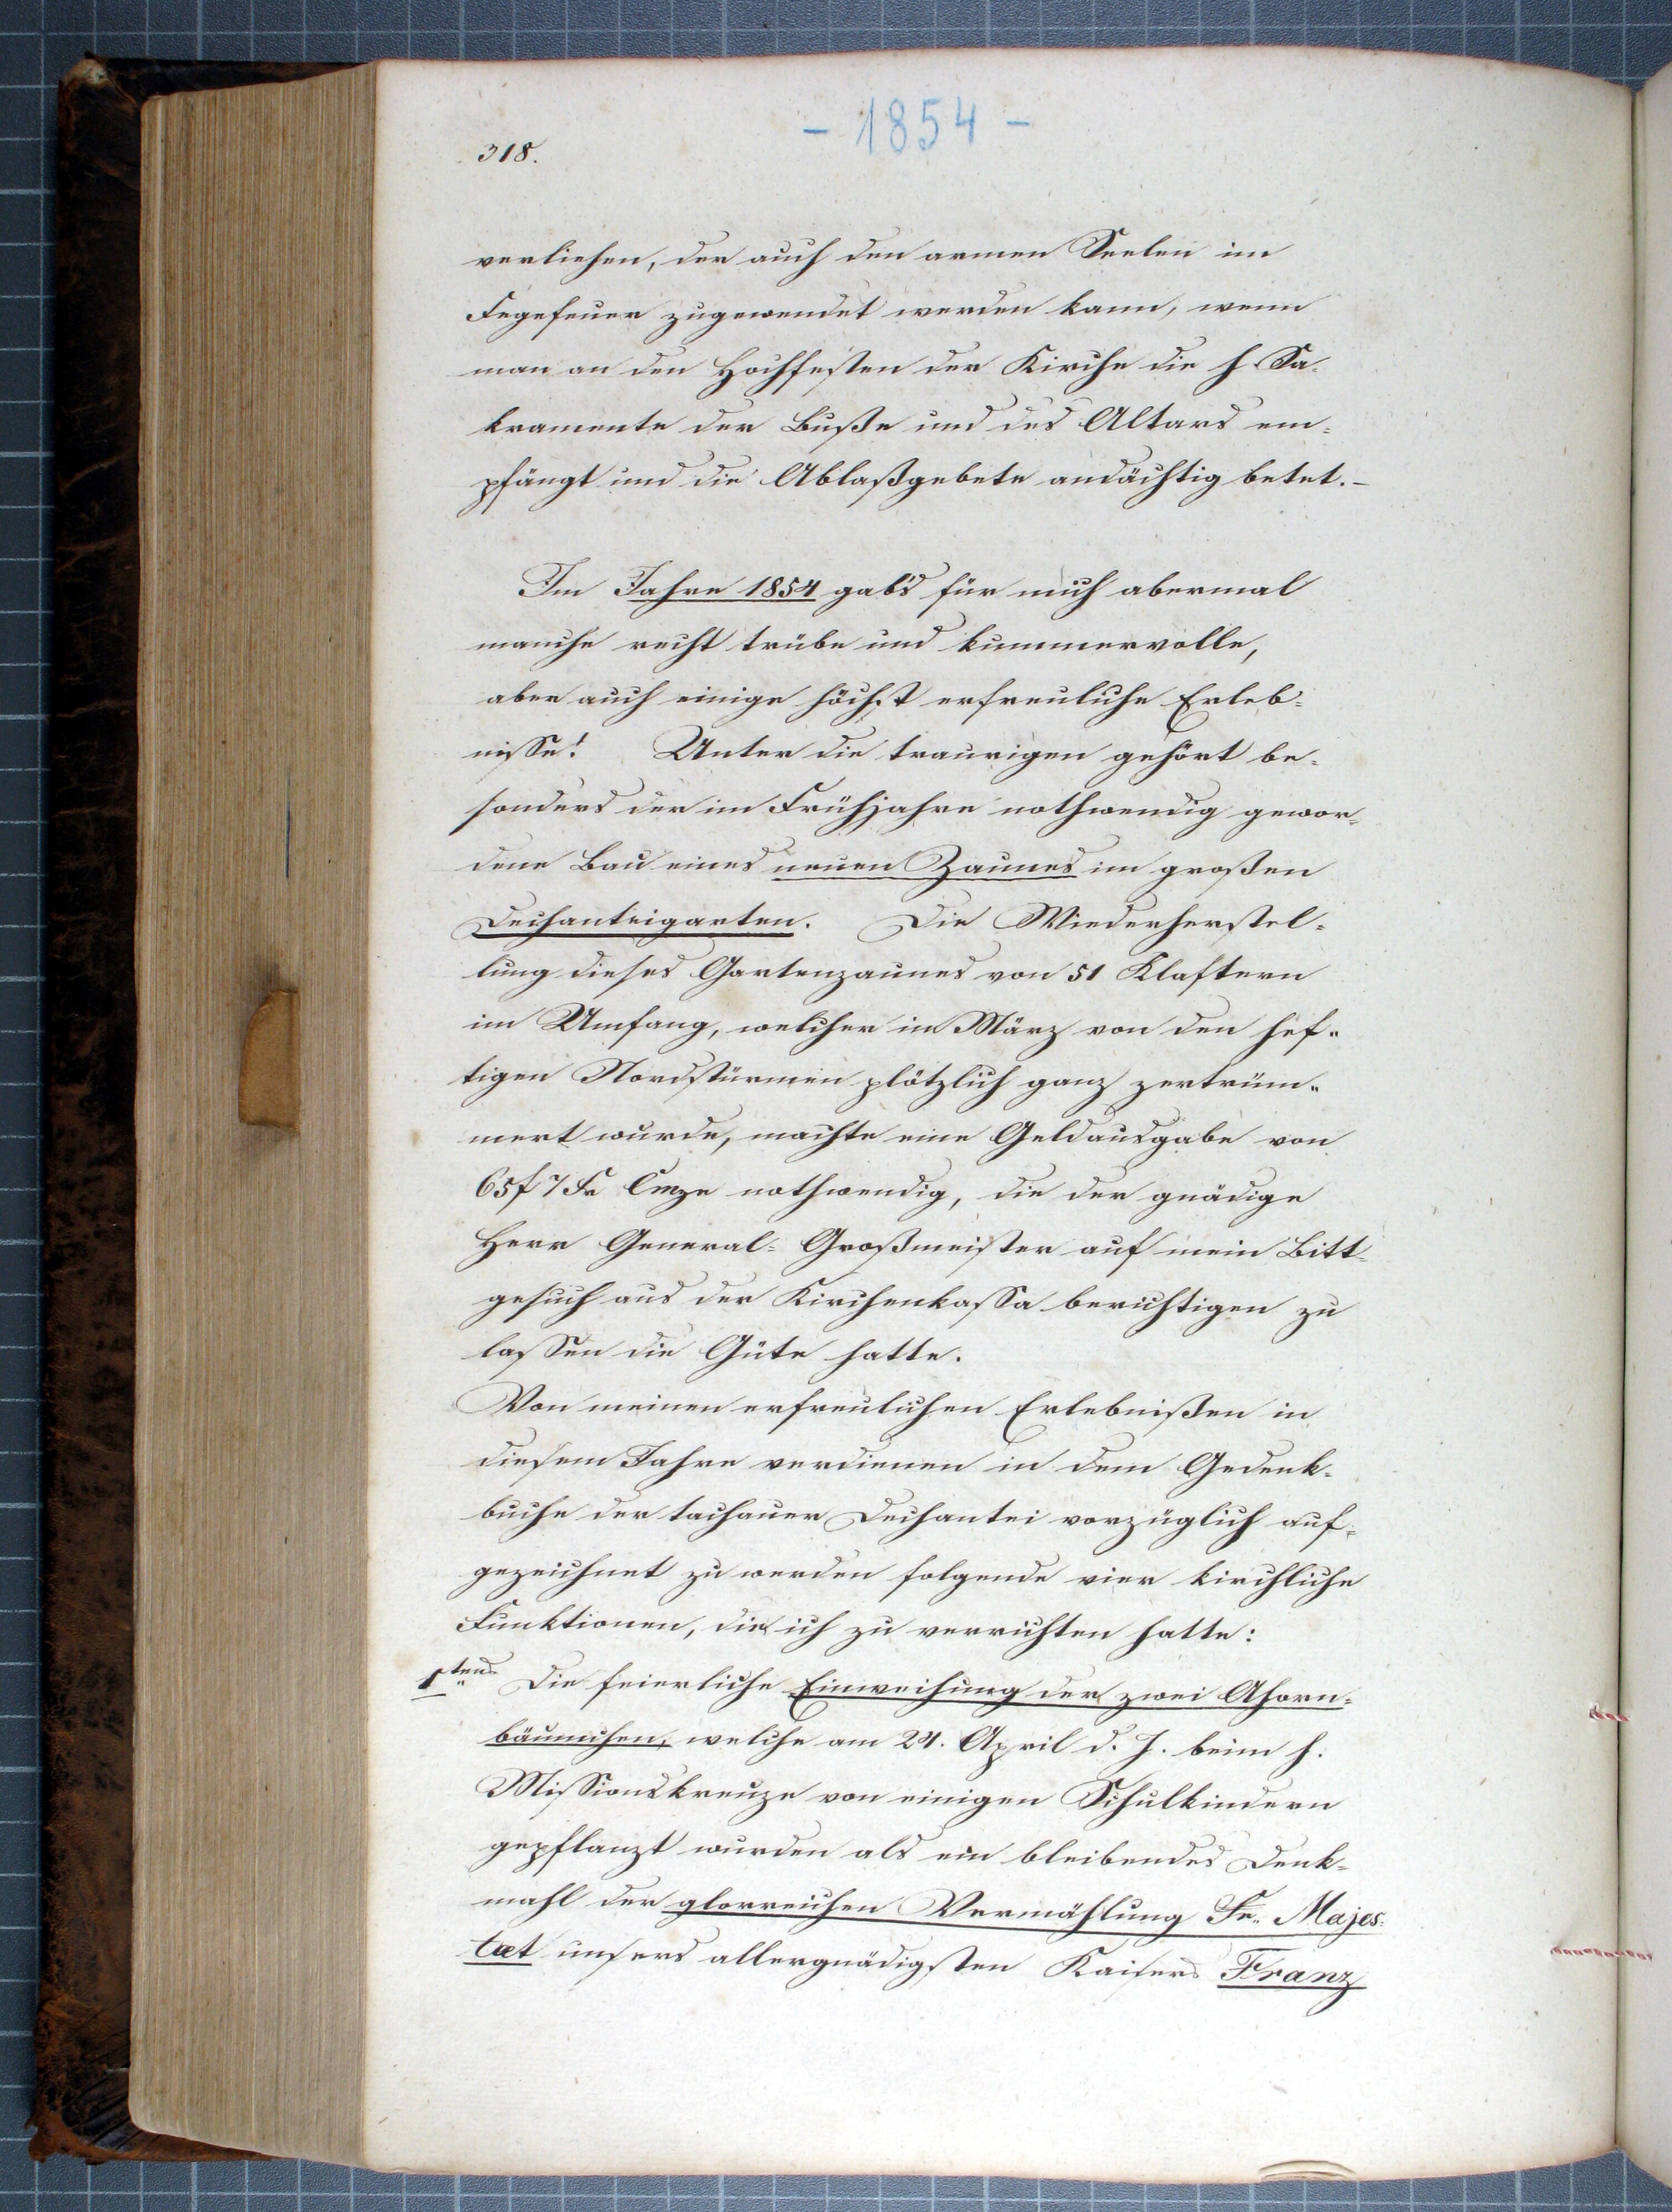 - 1854 -
318.
verliehen, der auch den armen Seelen im
Fegefeuer zugewendet werden kann, wenn
man an den Hochfesten der Kirche die h. Sa-
kramente der Buße und des Altars em-
pfängt und die Ablaßgebete andächtig betet.-
Im Jahre 1854 gab's für mich abermal
manche recht trübe und kummervolle,
aber auch einige höchst erfreuliche Erleb-
nisse! Unter die traurigen gehört be-
sonders der im Frühjahre nothwendig gewor-
dene Bau eines neuen Zaunes im großen
Dechanteigarten. Die Wiederherstel-
lung dieses Gartenzaunes von 51 Klaftern
im Umfang, welcher im März von den hef-
tigen Nordstürmen plötzlich ganz zertrüm-
mert wurde, machte eine Geldausgabe von
65 f 7 kr Cmze nothwendig, die der gnädige
Herr General-Großmeister auf mein Bitt-
gesuch aus der Kirchenkassa berichtigen zu
lassen die Güte hatte.
Von meinen erfreulichen Erlebnißen in
diesem Jahre verdienen in dem Gedenk-
buche der tachauer Dechantei vorzüglich auf-
gezeichnet zu werden folgende vier kirchliche
Funktionen, die ich zu verrichten hatte:
1tens Die feierliche Einweihung der zwei Ahorn-
bäumchen, welche am 24. April d. J. beim h.
Missionskreuze von einigen Schulkindern
gepflanzt wurden als ein bleibendes Denk-
mahl der glorreichen Vermählung Sr. Majes-
taet unsers allergnädigsten Kaisers Franz